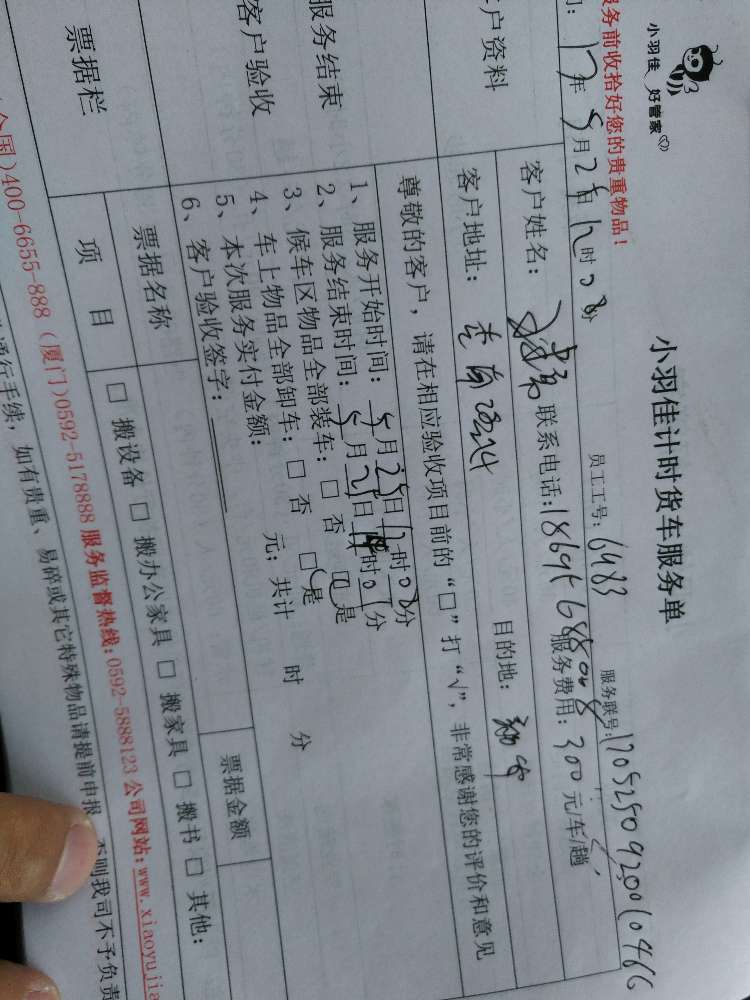 小羽佳 好管家
小羽佳计时货车服务单
服务前收拾好您的贵重物品！
员工工号：6483
服务联号：
17年5月25日 时08分
服务费用：300元/车/趟
客户资料
客户姓名：
联系电话：
客户地址：
目的地：
尊敬的客户，请在相应验收项目前的“□”打“√”，非常感谢您的评价和意见
服务结束
客户验收
1、服务开始时间：5月25日12时08分
2、服务结束时间：5月25日 时01分
3、候车区物品全部装车：□否 □是
4、车上物品全部卸车：□否 □是
5、本次服务实付金额： 元；共计 时 分
6、客户验收签字：
票据栏
票据名称
票据金额
项 目
□ 搬设备 □ 搬办公家具 □ 搬家具 □ 搬书 □ 其他：
全国)400-6655-888 (厦门)0592-5178888 服务监督热线：0592-5888123 公司网站：www.xiaoyujia
通行手续，如有贵重、易碎或其它特殊物品请提前申报，否则我司不予负责